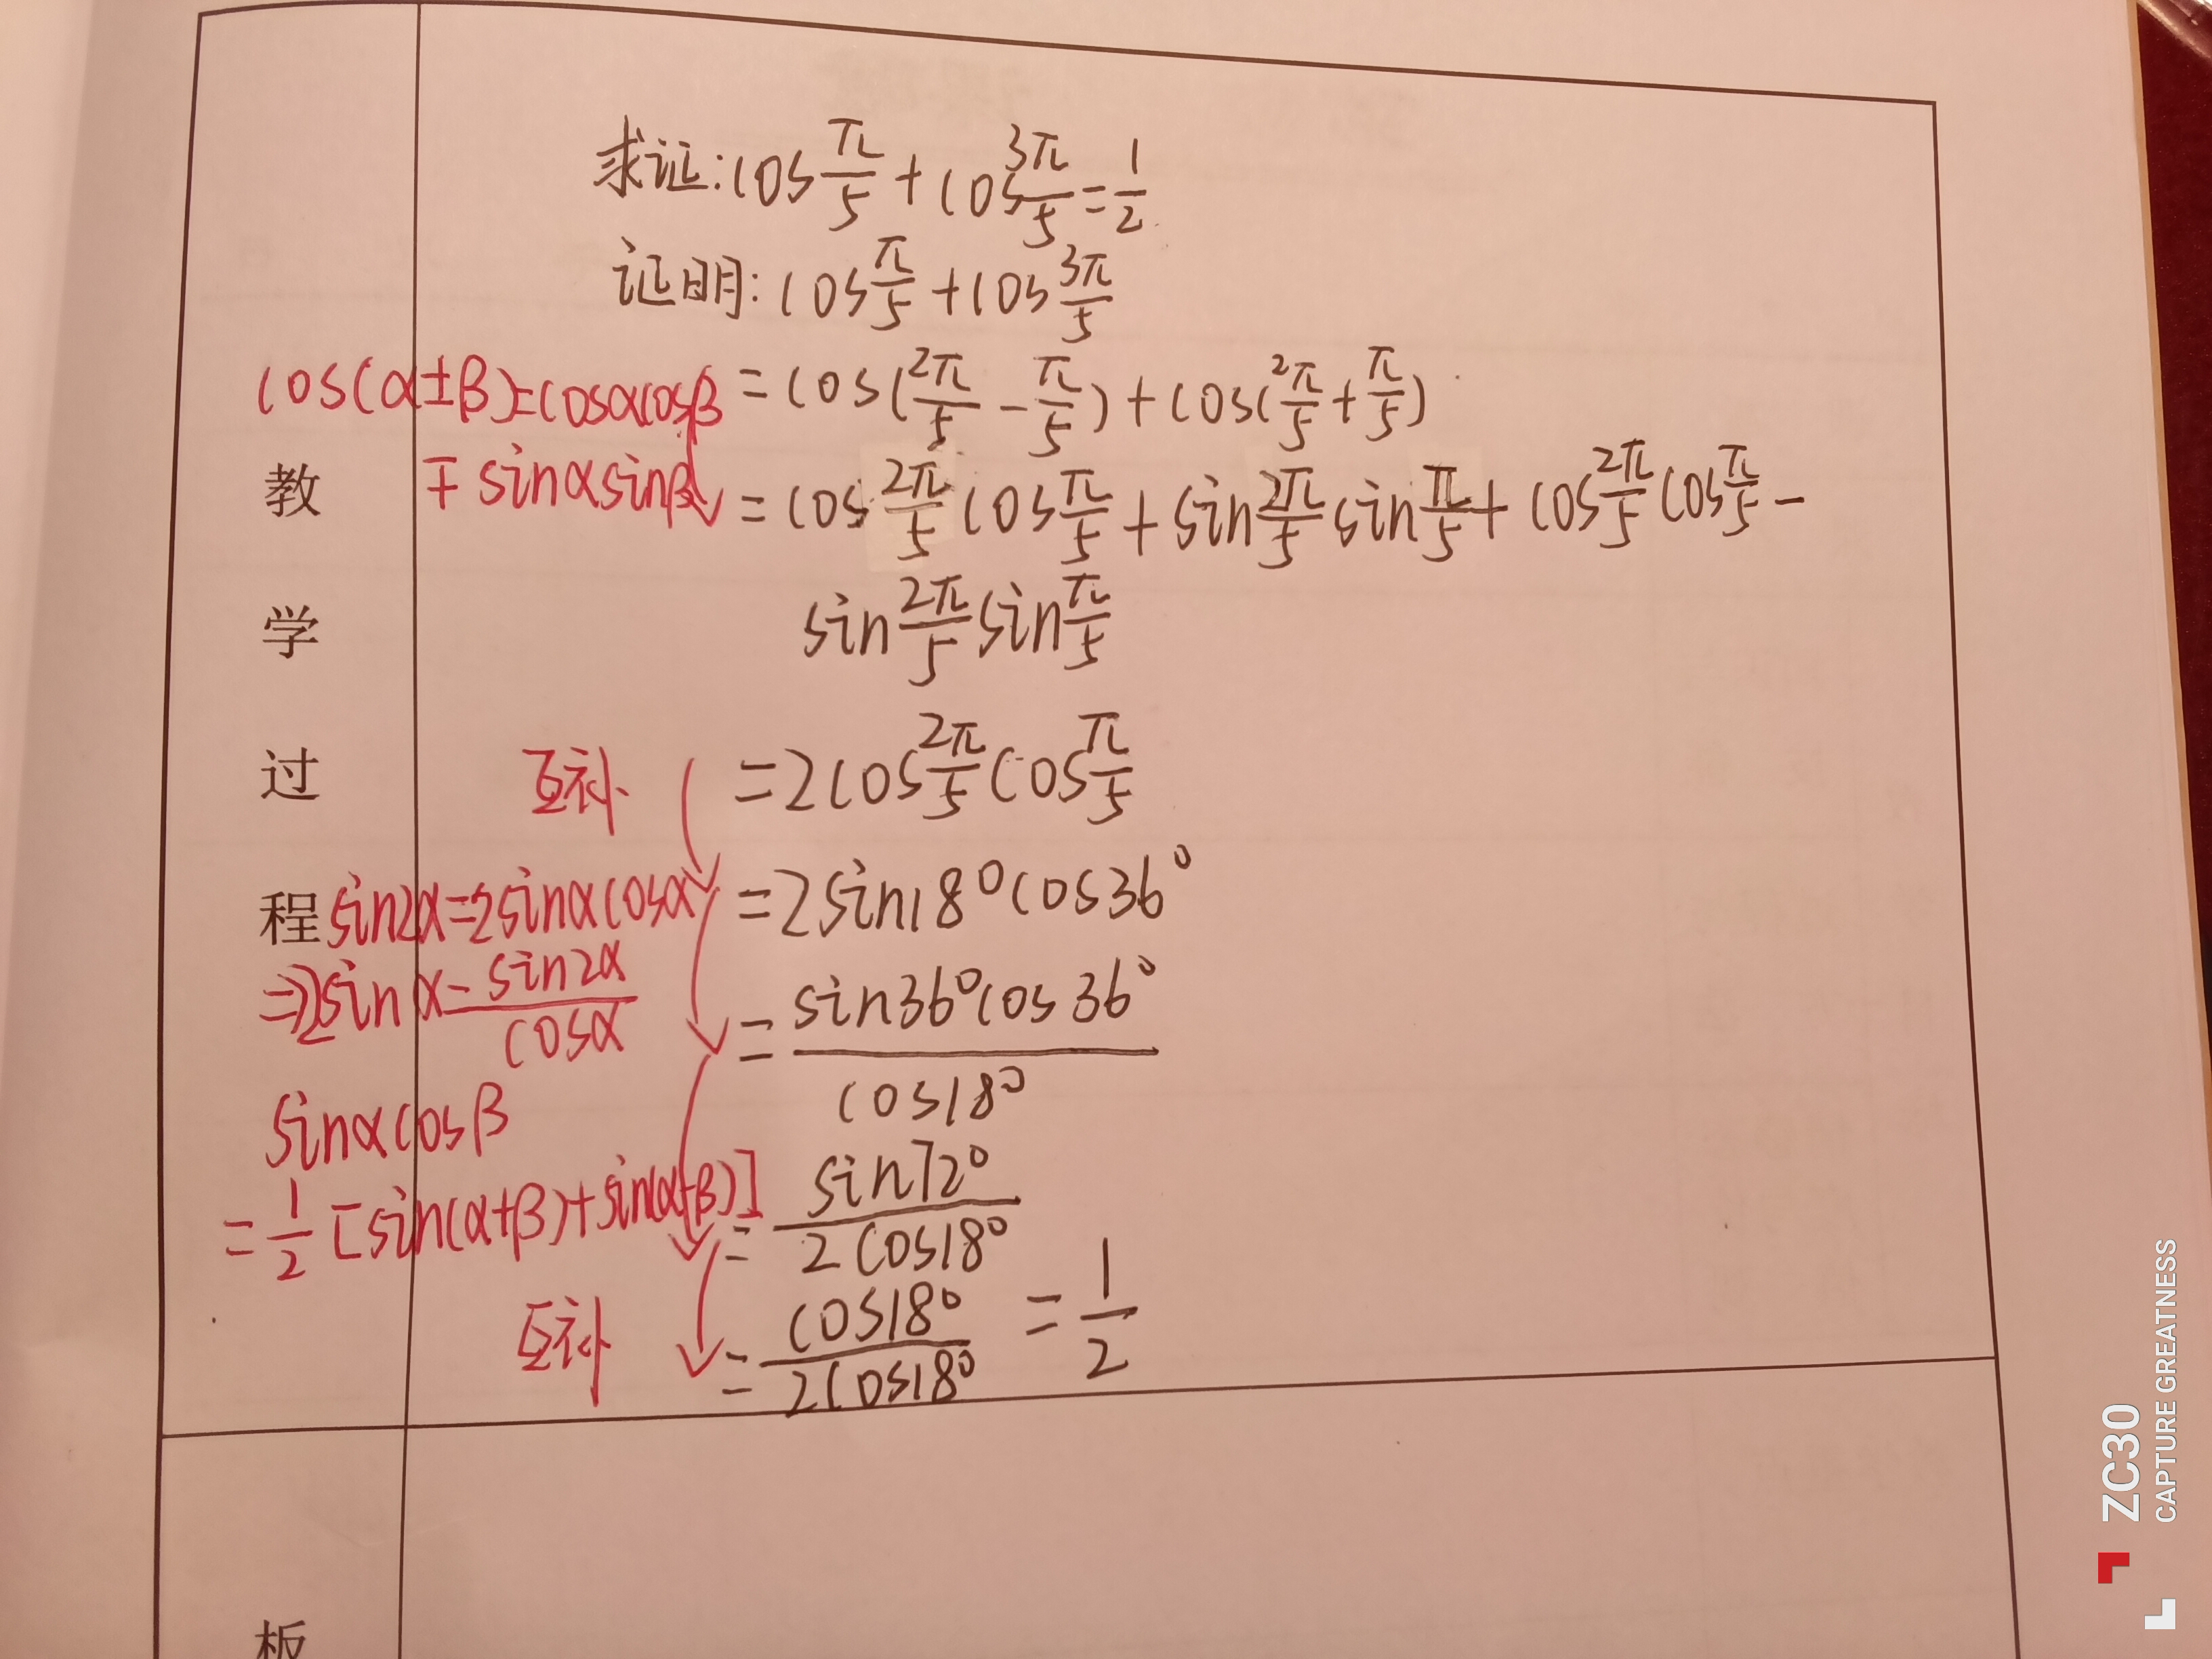 求证:cos π/5 + cos 3π/5 = 1/2
证明: cos π/5 + cos 3π/5
cos(α±β)=cosαcosβ = cos(2π/5 - π/5) + cos(2π/5 + π/5)
教 ∓ sinαsinβ = cos 2π/5 cos π/5 + sin 2π/5 sin π/5 + cos 2π/5 cos π/5 -
学 sin 2π/5 sin π/5
过 互补 = 2cos 2π/5 cos π/5
程 sin2α=2sinαcosα = 2sin18°cos36°
⇒2sinα= sin2α/cosα = sin36°cos36°/cos18°
sinαcosβ
= 1/2 [sin(α+β)+sin(α-β)] = sin72°/2cos18°
互补 = cos18°/2cos18° = 1/2
板
ZC30
CAPTURE GREATNESS